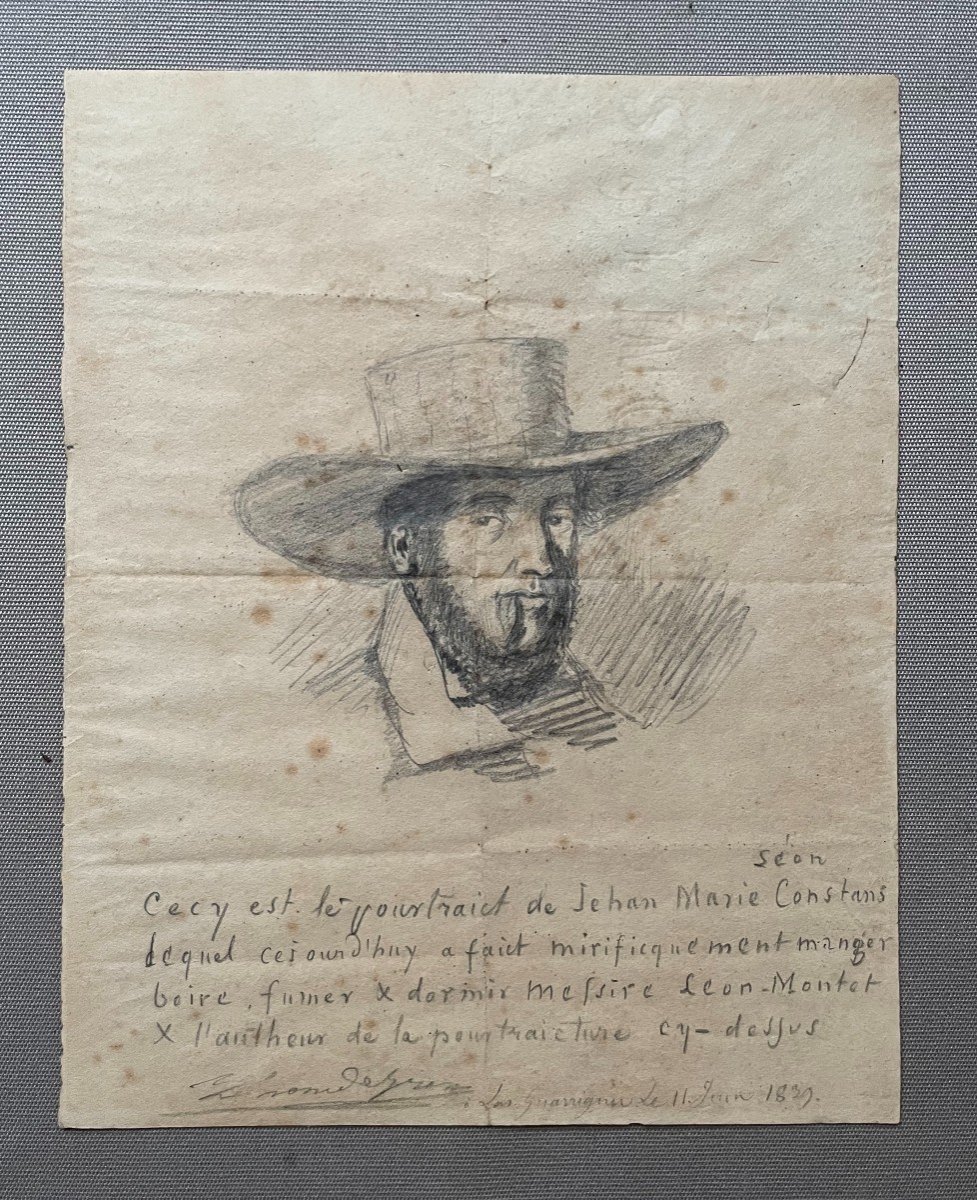 Séon
Cecy est le pourtraict de Jehan Marie Constans
lequel cejourd'huy a faict mirificquement manger
boire, fumer & dormir Messire Léon-Montet
& l'autheur de la pourtraicture cy-dessus
le 11. Juin 1839.